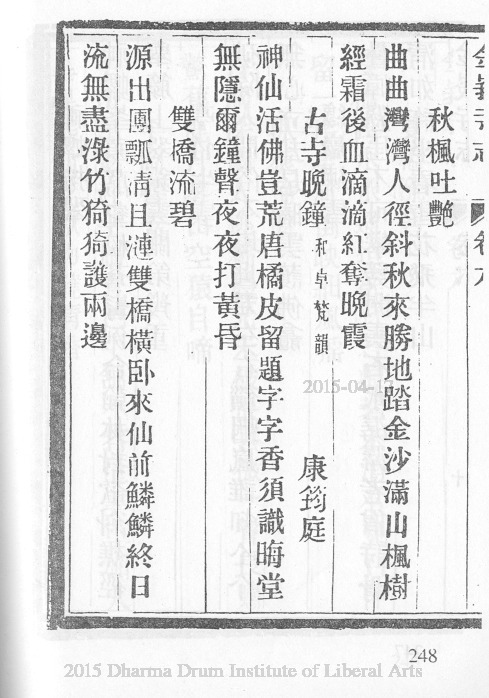 秋楓吐艷
曲曲灣灣人徑斜秋來勝地踏金沙滿山楓樹
經霜後血滴滴紅奪晚霞
古寺晚鐘 和卓梵韻 康筠庭
神仙活佛豈荒唐橘皮留題字字香須識晦堂
無隱爾鐘聲夜夜打黃昏
雙橋流碧
源出團瓢清且漣雙橋橫卧來仙前鱗鱗終日
流無盡淥竹猗猗護兩邊
2015-04-17
248
2015 Dharma Drum Institute of Liberal Arts